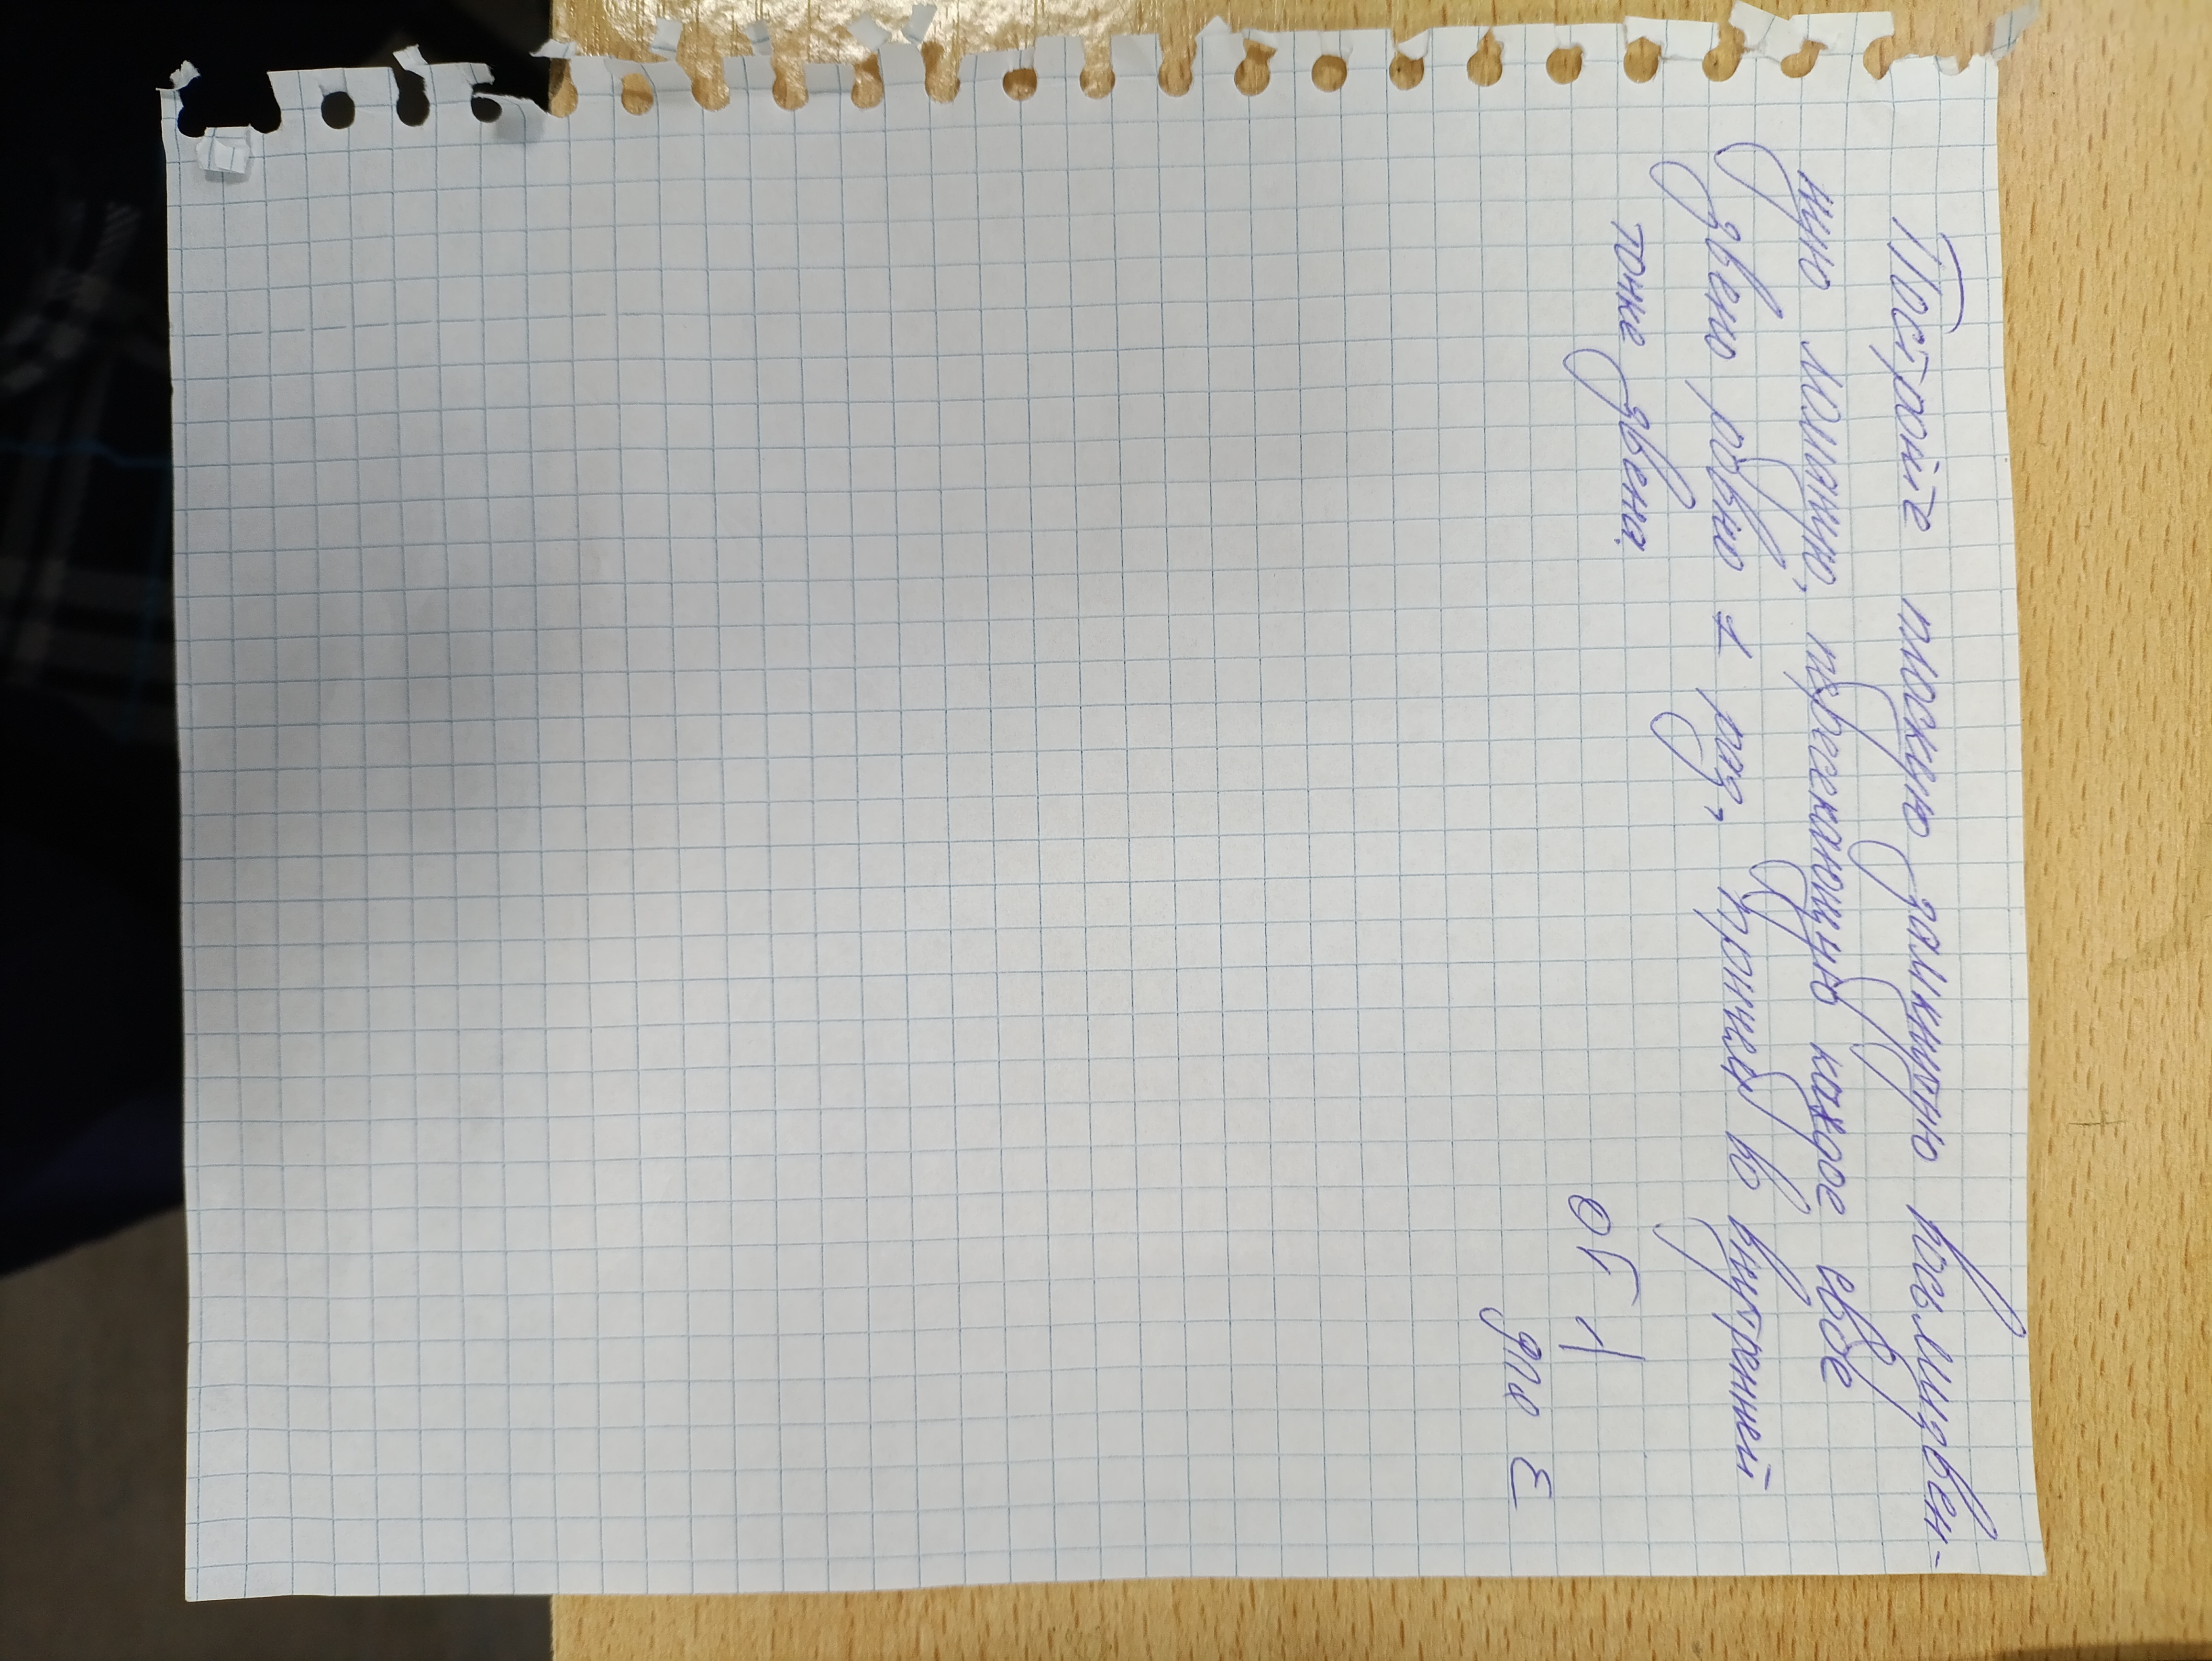 Постройте плоскую замкнутую восьмизвен-
ную ломаную, пересекающую каждое своё
звено ровно 1 раз, причем во внутренней
точке звена.
ОГ 4
для Е